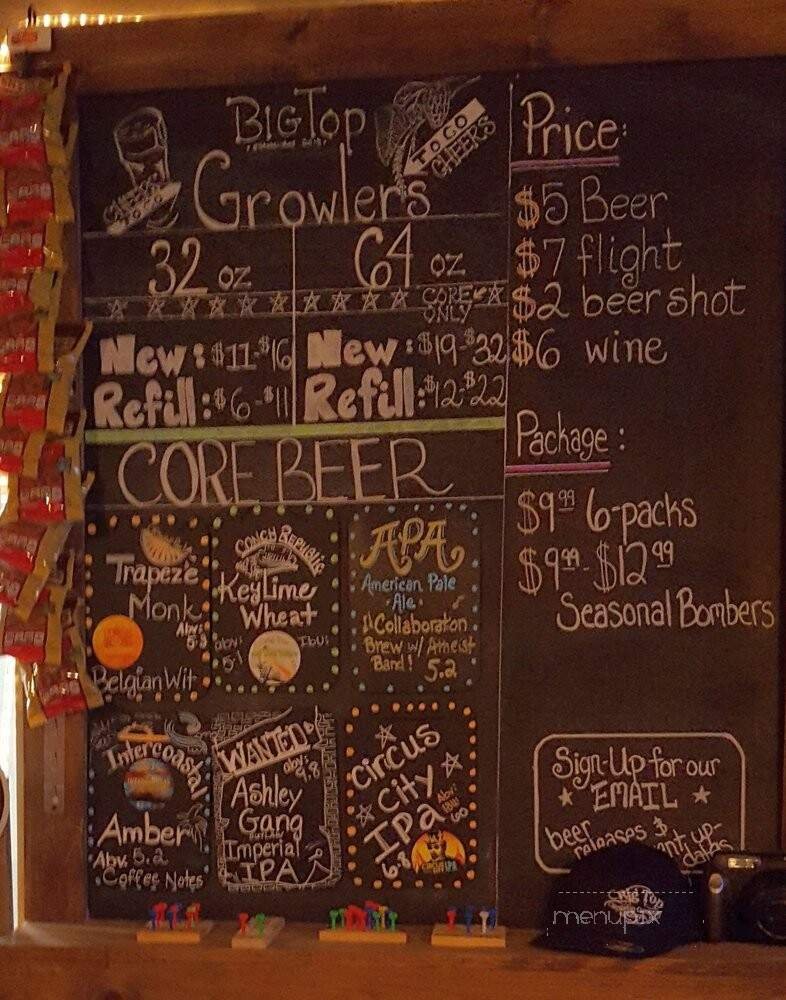 BIG TOP
TO GO
CHEERS
Growlers
32 oz
64 oz
CORE
ONLY
New: $11-$16
Refill: $6-$11
New: $19-$32
Refill: $12-$22
CORE BEER
Trapeze
Monk
Abv:
5.3
Belgian Wit
CONCH REPUBLIC
Key Lime
Wheat
abv:
5.1
Ibu:
APA
American Pale
Ale
Collaboration
Brew w/ Ameist
Band!
5.2
Intercoastal
Amber
Abv. 5.2
Coffee Notes
WANTED
abv:
9.8
Ashley
Gang
Imperial
IPA
Circus
City
IPa
6.8
60
Price:
$5 Beer
$7 flight
$2 beer shot
$6 wine
Package:
$9.99 6-packs
$9.99-$12.99
Seasonal Bombers
Sign-Up for our
EMAIL
beer
releases &
up-
dates
BIG TOP
menupix